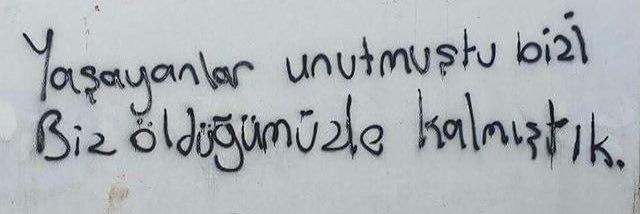 Yaşayanlar unutmuştu bizi
Biz öldüğümüzle kalmıştık.